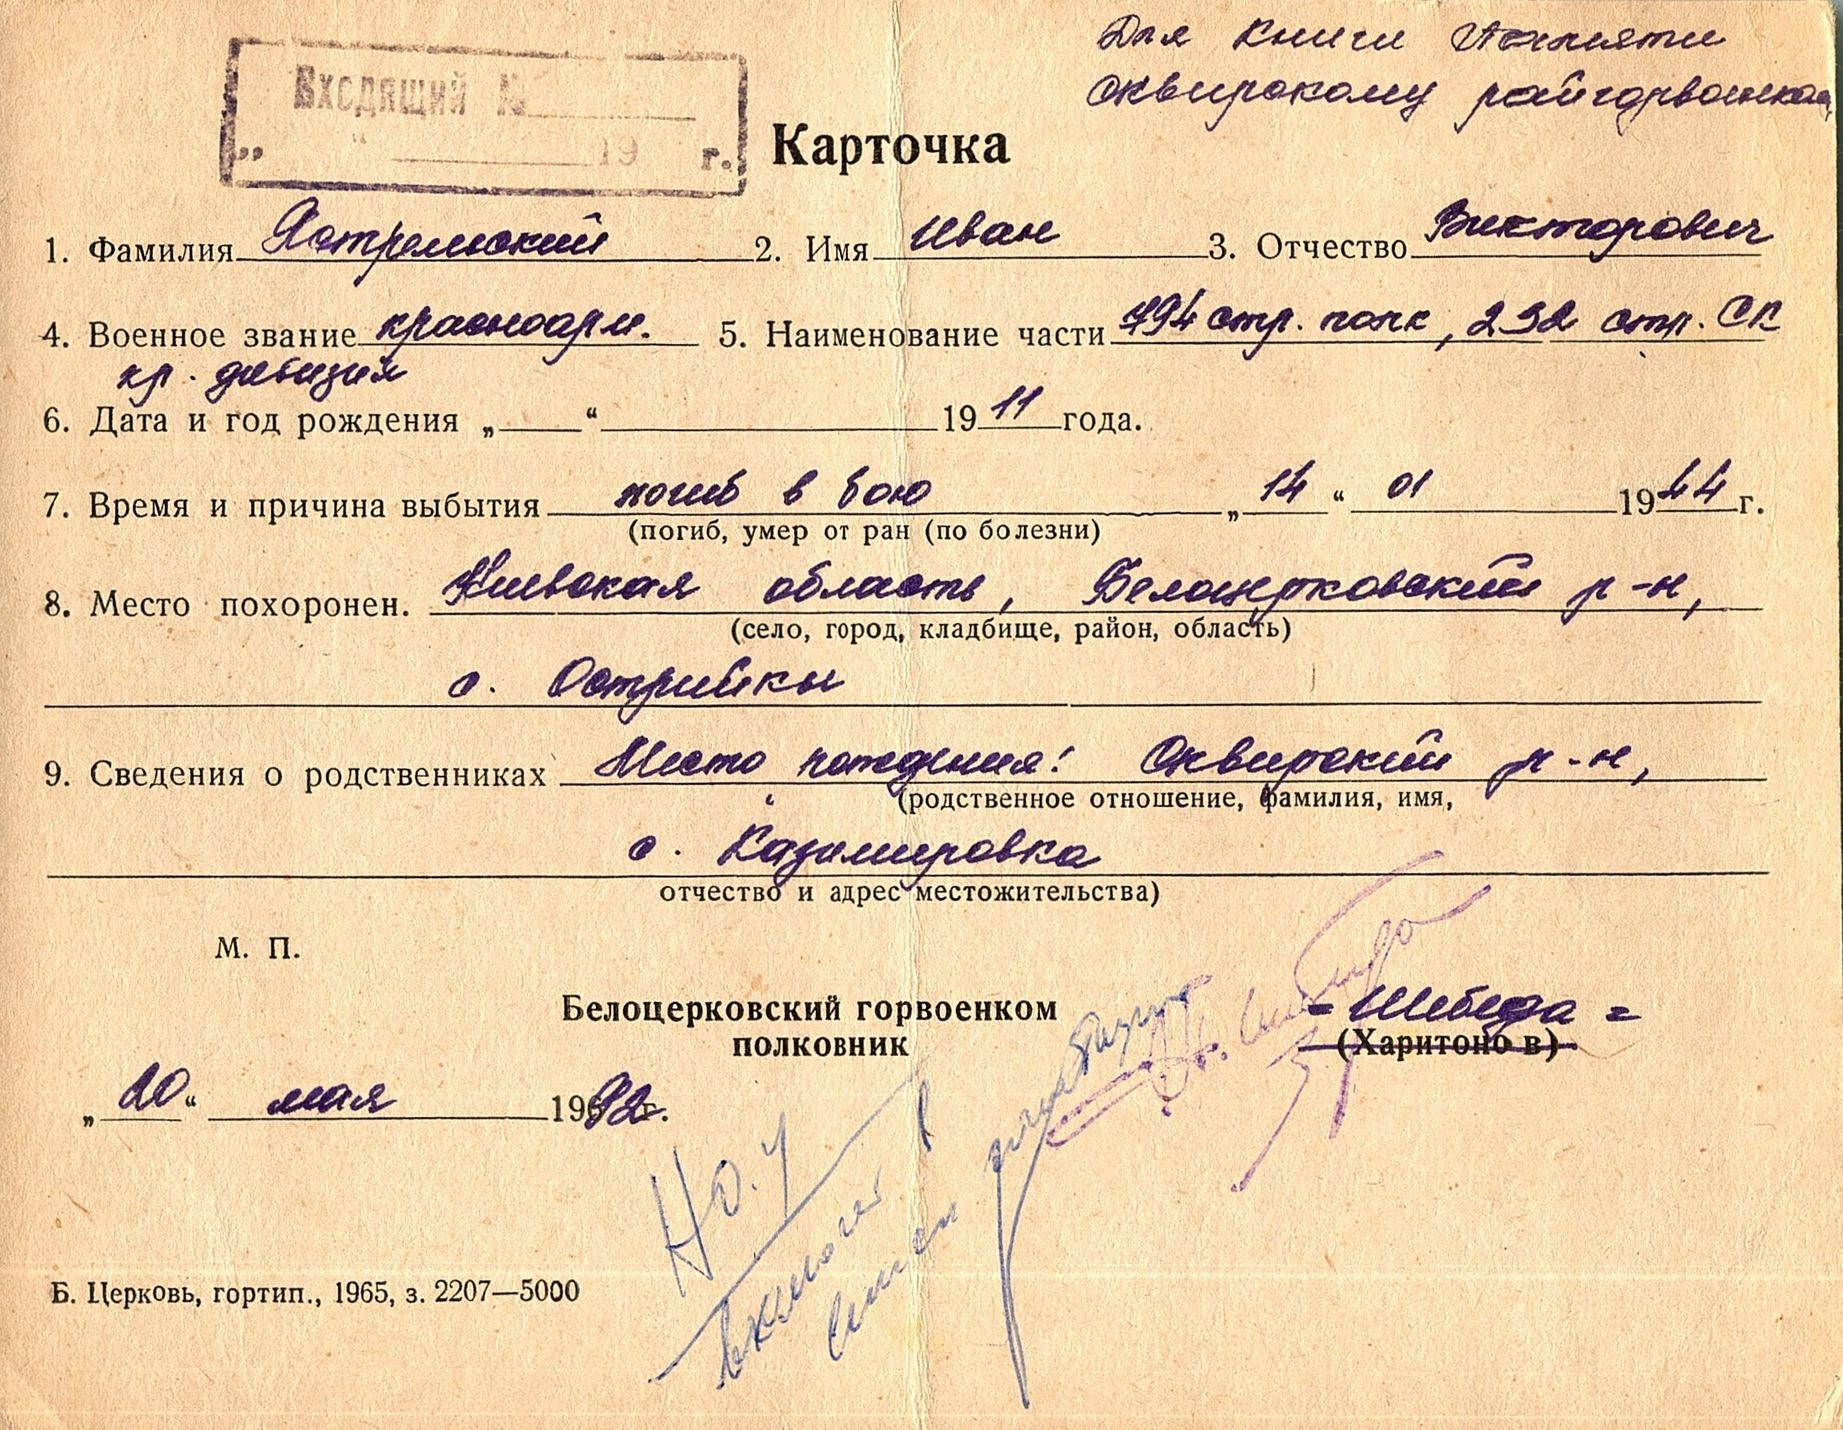 Для Книги Памяти
Сквирскому райгорвоенкому
Входящий №
„ “ 19 г.
Карточка
1. Фамилия Ястремский 2. Имя Иван 3. Отчество Викторович
4. Военное звание красноарм. 5. Наименование части 794 стр. полк, 232 стр. СК
кр. дивизия
6. Дата и год рождения „ “ 1911 года.
7. Время и причина выбытия погиб в бою „14“ 01 1944 г.
(погиб, умер от ран (по болезни)
8. Место похоронен. Киевская область, Белоцерковский р-н,
(село, город, кладбище, район, область)
с. Острийки
9. Сведения о родственниках Место рождения: Сквирский р-н,
(родственное отношение, фамилия, имя,
с. Казимировка
отчество и адрес местожительства)
М. П.
Белоцерковский горвоенком
полковник
= Шебеда =
(Харитонов)
„20“ мая 1992 г.
Но. 4
включен в
списки
Б. Церковь, гортип., 1965, з. 2207—5000